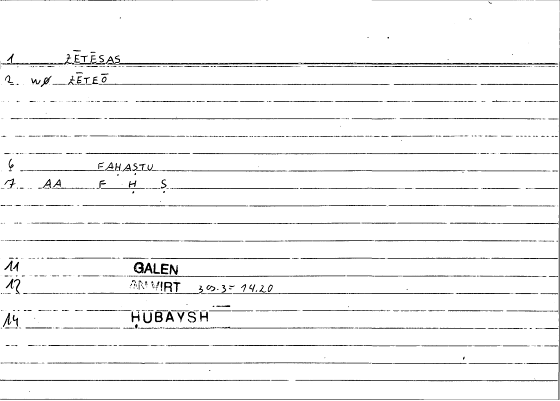 1 ZĒTĒSAS
2 wØ ZĒTEŌ
6 FAḤAṢTU
7 AA F Ḥ Ṣ
11 GALEN
12 VIRT 14.20
14 ḤUBAYSH